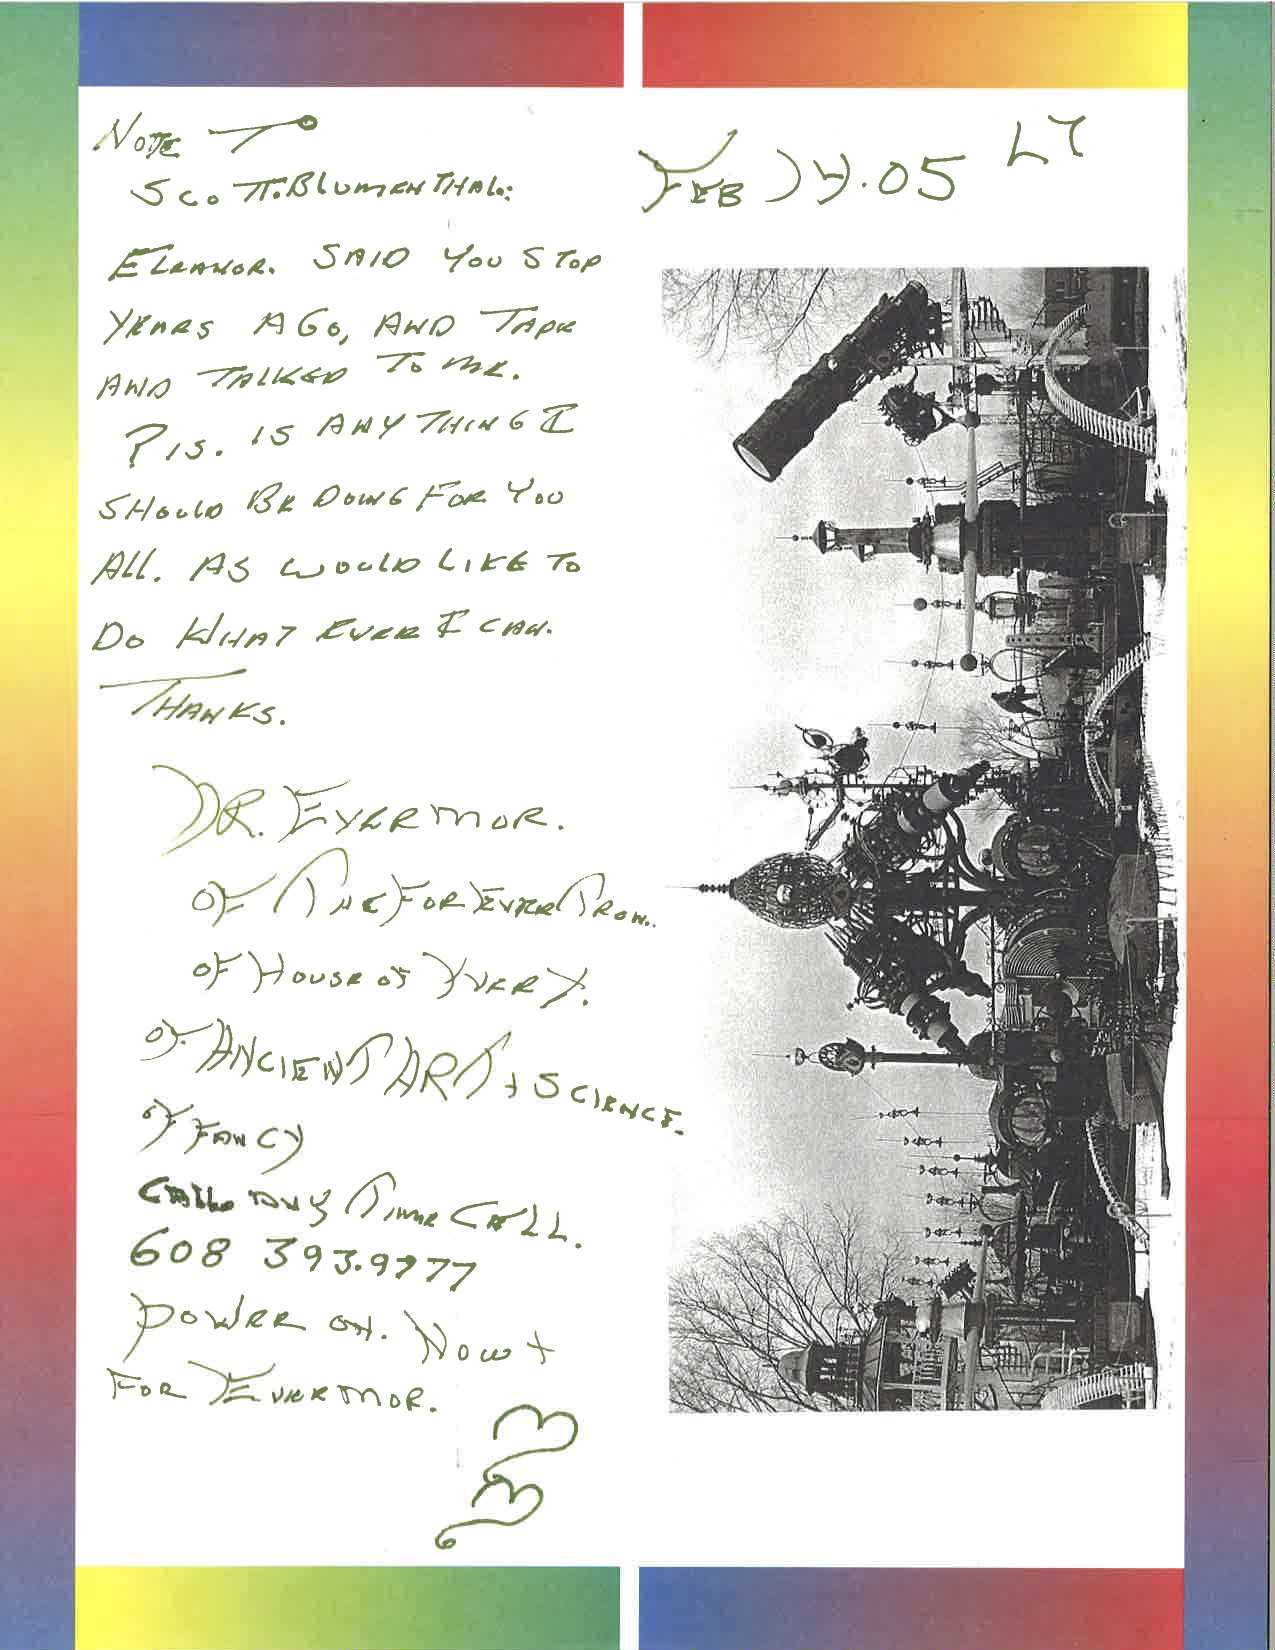 NOTE TO
SCOTT. BLUMENTHAL:
ELEANOR. SAID YOU STOP
YEARS AGO, AND TAPE
AND TALKED TO ME.
PIS. IS ANY THING I
SHOULD BE DOING FOR YOU
ALL. AS WOULD LIKE TO
DO WHAT EVER I CAN.
THANKS.
DR. EVERMOR.
OF THE FOREVERTRON.
OF HOUSE OF
OF ANCIENT ART + SCIENCE.
OF FANCY
CALL ANY TIME CALL.
608 393.9777
POWER ON. NOW +
FOR EVERMOR.
FEB .05 LT